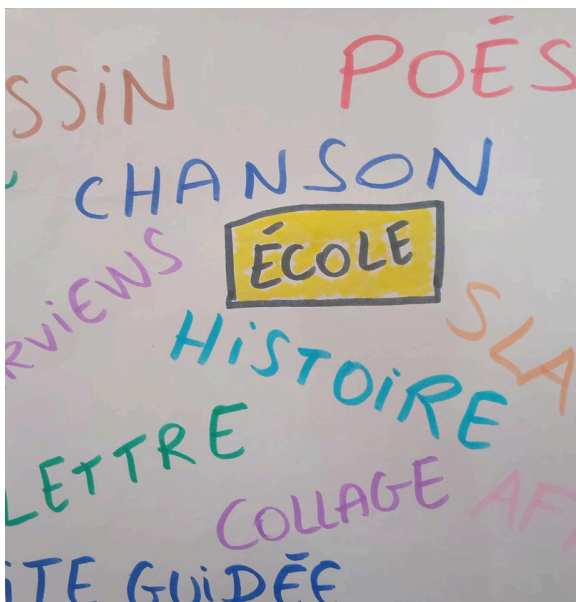 SSiN
POÉS
CHANSON
ÉCOLE
RViEWS
HiSTOiRE
SLA
LETTRE
COLLAGE
AF
iTE GUiDÉE